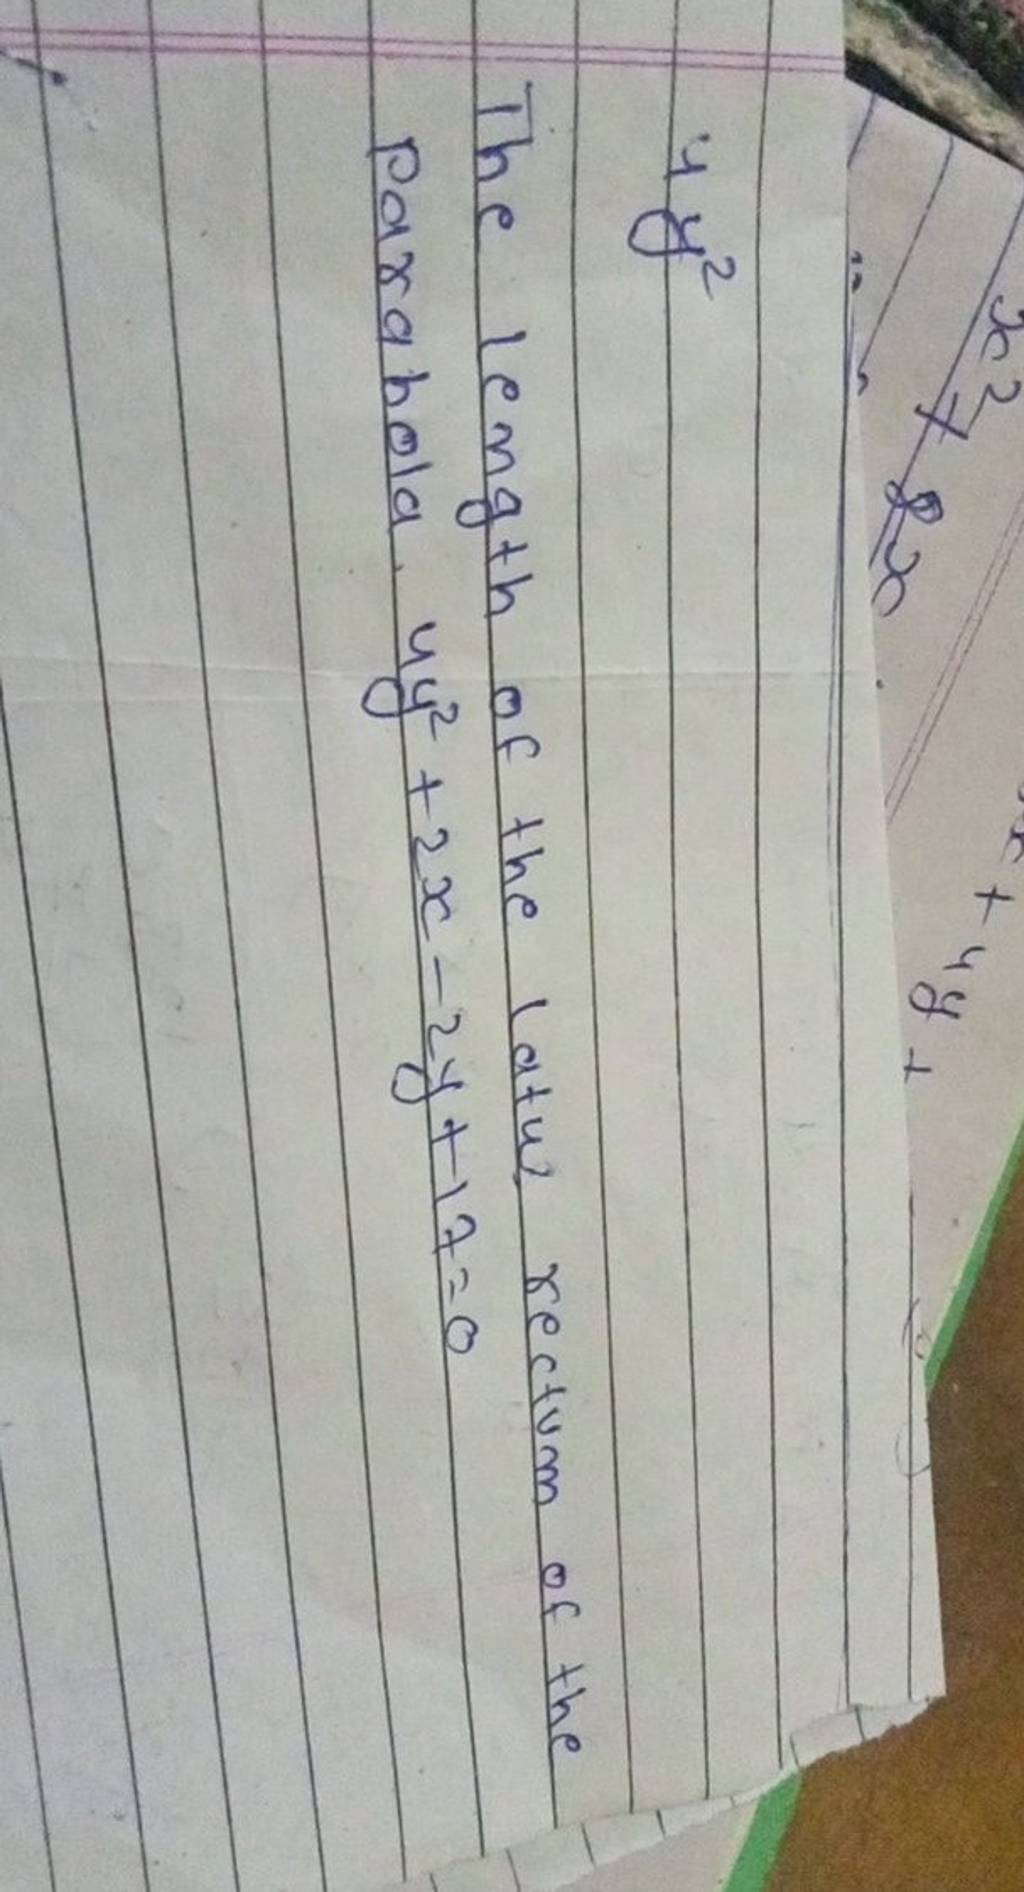 x² + 8x
x + 4y +
4y²
The length of the latus rectum of the
parabola. 4y² + 2x - 2y + 17 = 0